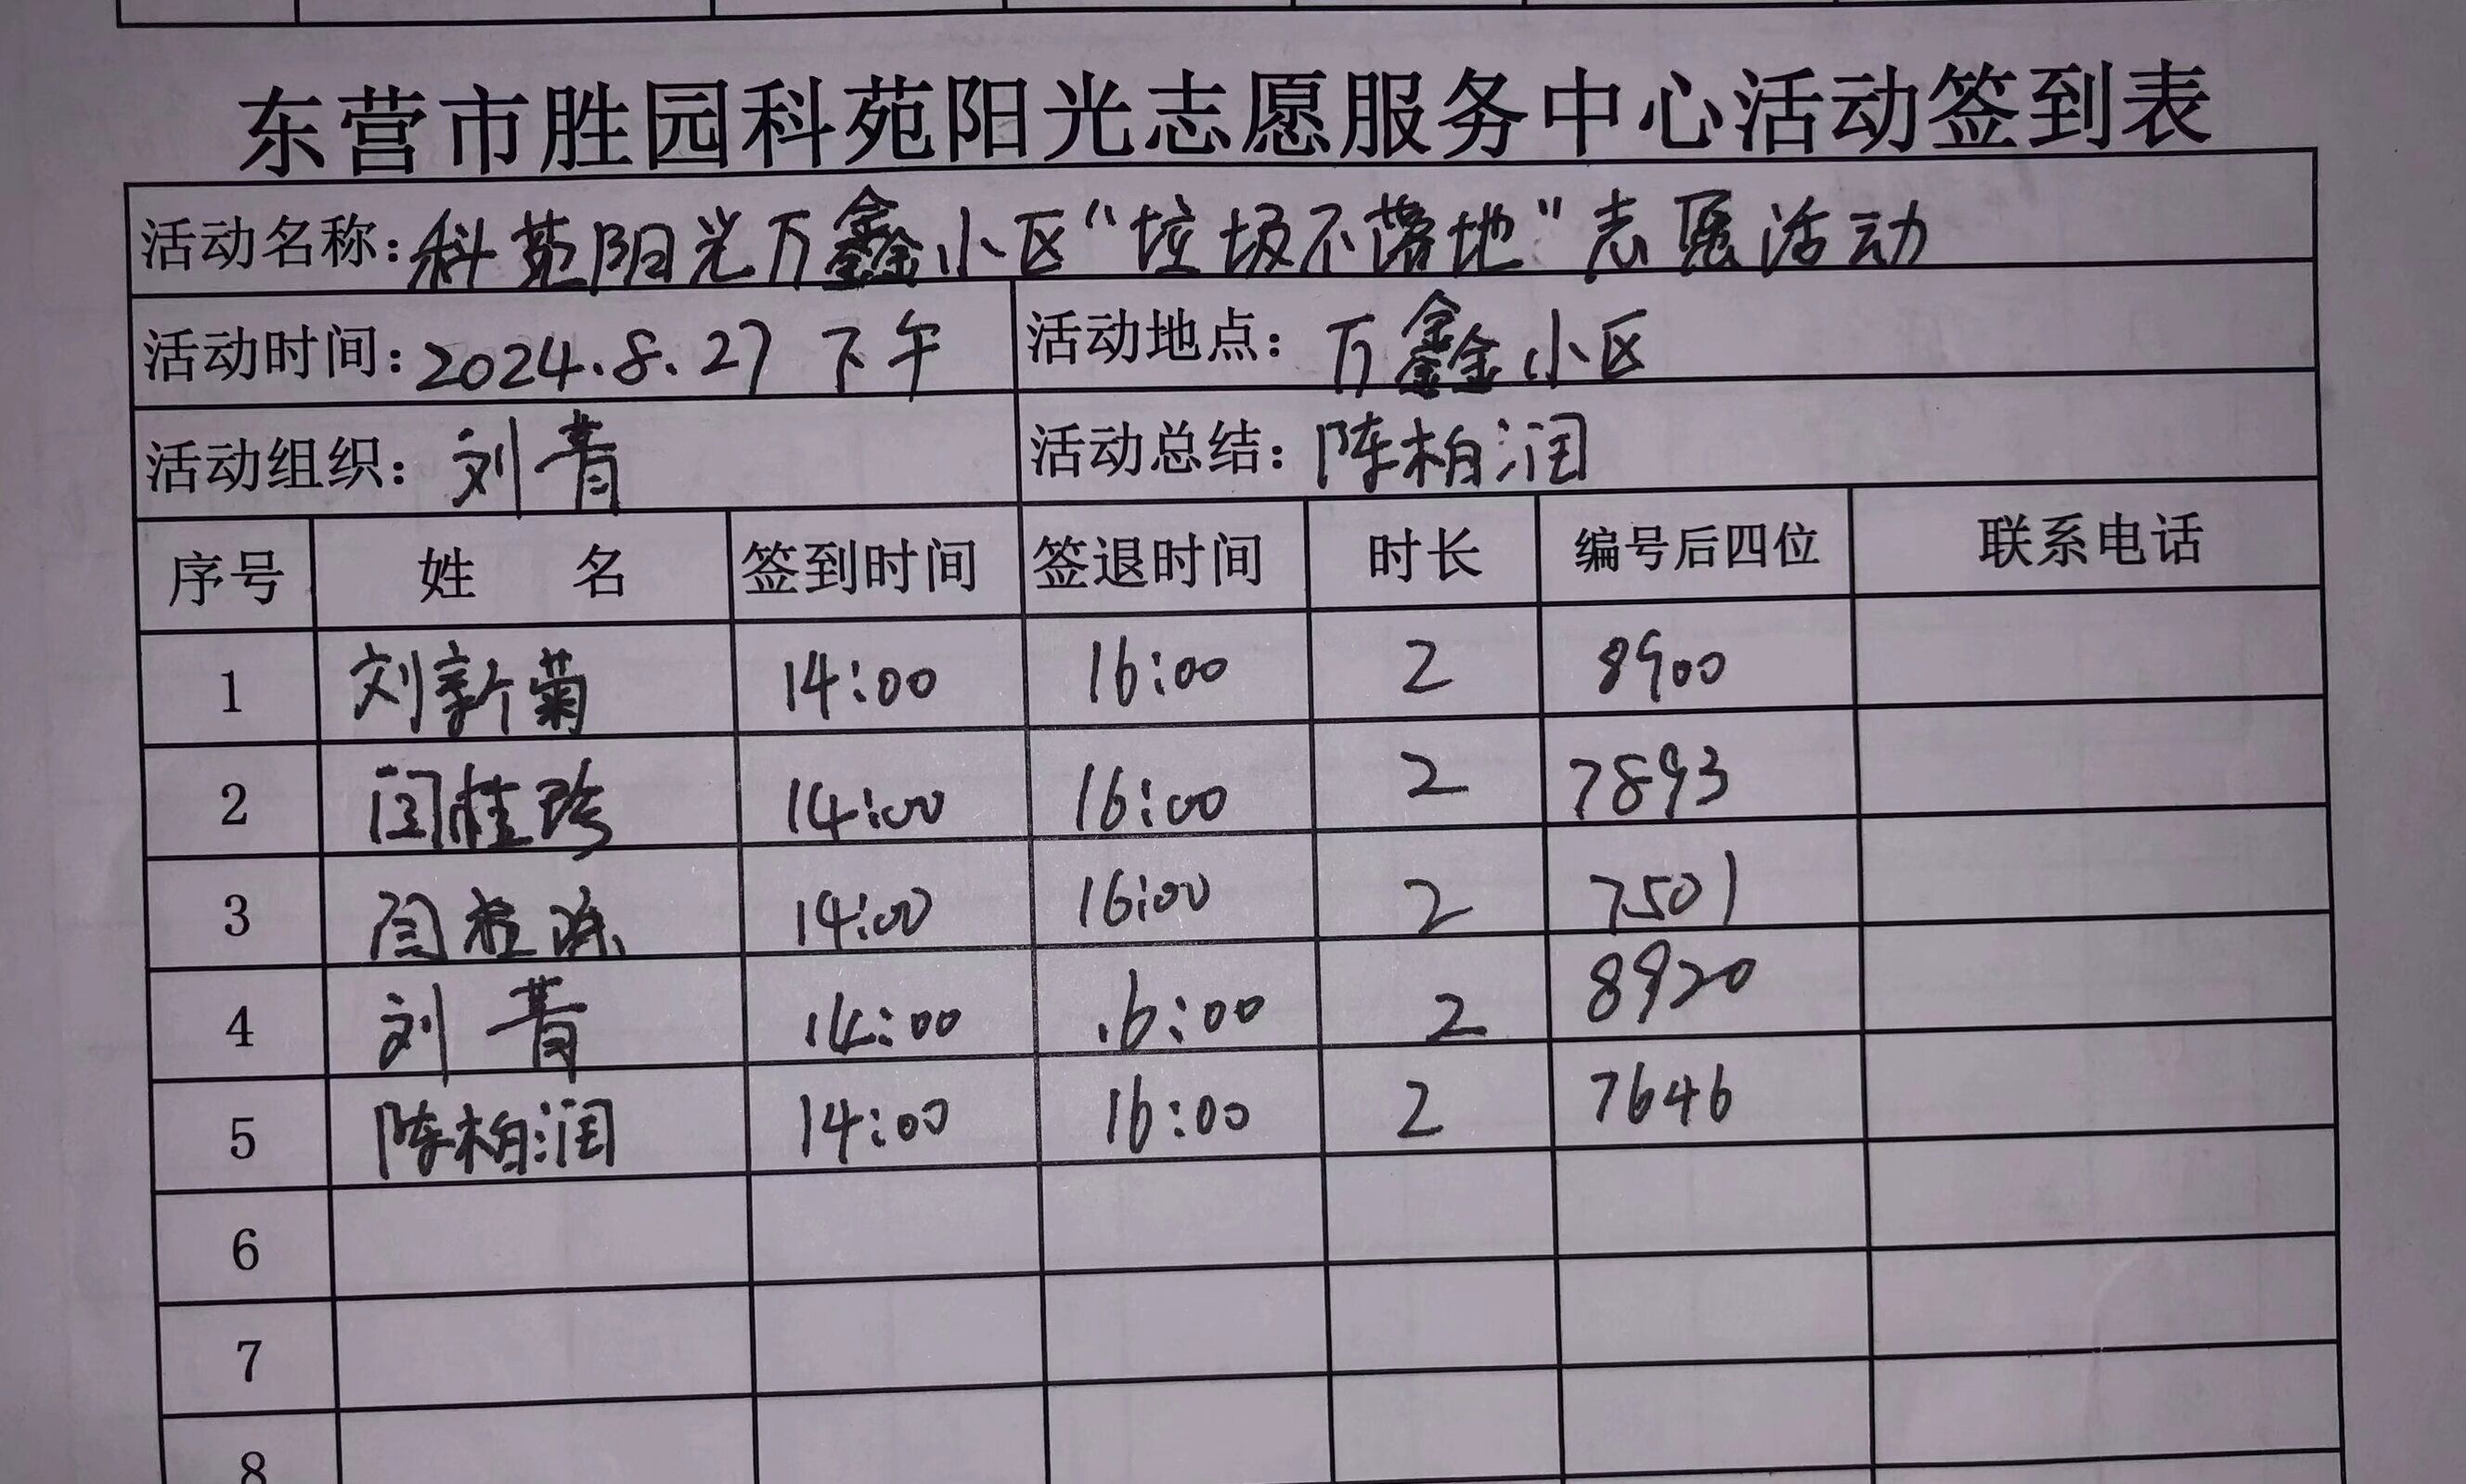 东营市胜园科苑阳光志愿服务中心活动签到表
活动名称:科苑阳光万鑫小区“垃圾不落地”志愿活动
活动时间:2024.8.27 下午 活动地点: 万鑫小区
活动组织: 刘青 活动总结: 陈柏润
序号 姓 名 签到时间 签退时间 时长 编号后四位 联系电话
1 刘新菊 14:00 16:00 2 8900
2 闫桂珍 14:00 16:00 2 7893
3 14:00 16:00 2 7501
4 刘青 14:00 16:00 2 8920
5 陈柏润 14:00 16:00 2 7646
6
7
8